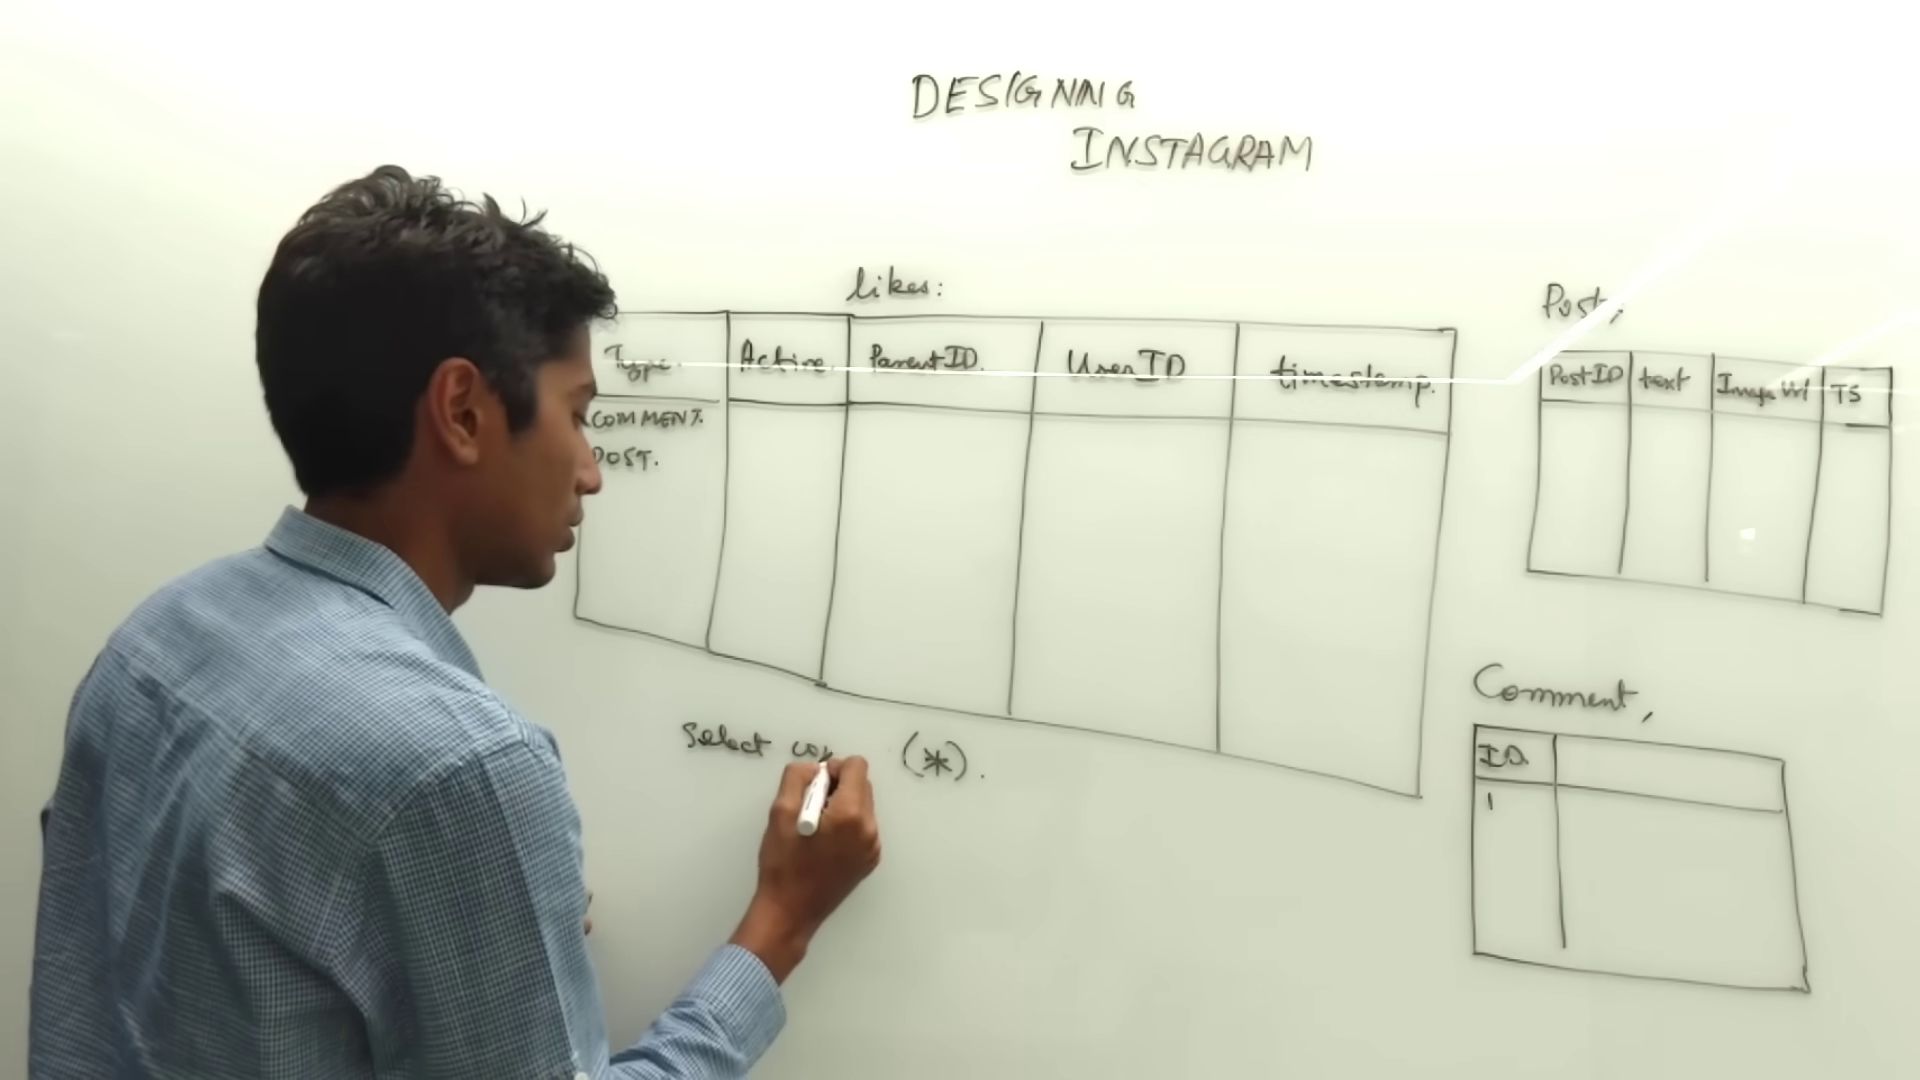 DESIGNING
INSTAGRAM
likes:
Type. Active. ParentID. UserID timestamp.
COMMENT.
POST.
Select (*).
Post,
PostID text Image Url TS
Comment,
ID.
1